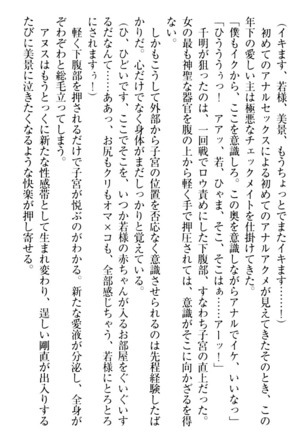 (イキます、若様、美景、もうちょっとでまたイキます……!)
初めてのアナルセックスによる初めてのアナルアクメが見えてきたそのとき、この
年下の愛しい主は極悪なチェックメイトを仕掛けてきた。
「僕もイクから、ここを意識しろ。この奥を意識しながらアナルでイケ、いいなっ」
「ひううぅっ! アアッ、若、ひゃま、そこ、そこはぁ……アーッ!」
千明が狙ったのは、一回戦でロウ責めにした下腹部、すなわち子宮の直上だった。
女の最も神聖な器官を腹の上から軽く手で押圧されては、意識がそこに向かざるを得
ない。
しかもこうして外部から子宮の位置を否応なく意識させられるのは先程経験したば
かりだ。心だけでなく身体がまだしっかりと覚えている。
(ひ、ひどいです、ここでそこを、いつか若様の赤ちゃんが入るお部屋をぐいぐいす
るなんてえ……ああっ、お尻もクリもオマ×コも、全部感じちゃう、若様にとろとろ
にされますぅ!)
軽く下腹部を押されるだけで子宮が悦ぶのがわかる。新たな愛液が分泌し、全身が
ぞわぞわと総毛立ってしまう。
アヌスはもうとっくに新たな性感帯として生まれ変わり、逞しい剛直が出入りする
たびに美景に泣きたくなるような快楽が押し寄せる。